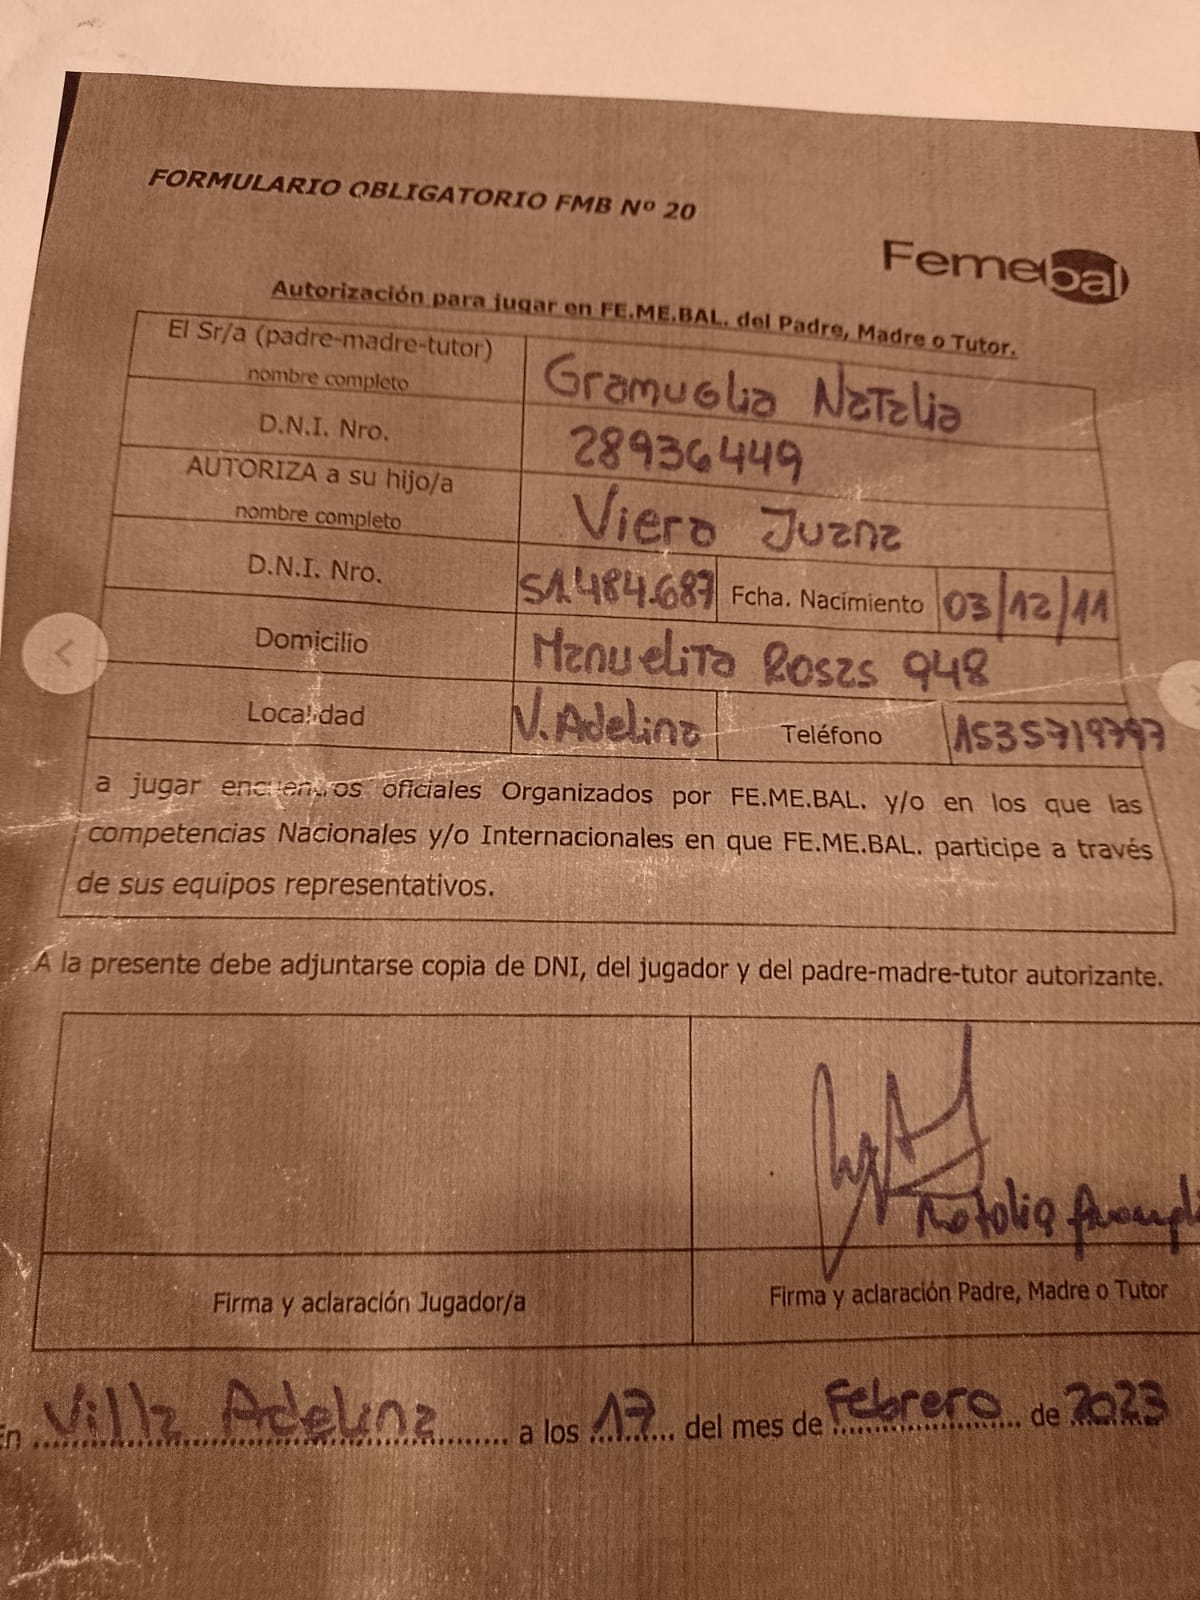 FORMULARIO OBLIGATORIO FMB Nº 20
Femebal
Autorización para jugar en FE.ME.BAL. del Padre, Madre o Tutor.
El Sr/a (padre-madre-tutor)
nombre completo
Gramuglia Natalia
D.N.I. Nro.
28936449
AUTORIZA a su hijo/a
nombre completo
Viero Juana
D.N.I. Nro.
51.484.687
Fcha. Nacimiento
03/12/11
Domicilio
Manuelita Rosas 948
Localidad
V. Adelina
Teléfono
a jugar encuentros oficiales Organizados por FE.ME.BAL. y/o en los que las
competencias Nacionales y/o Internacionales en que FE.ME.BAL. participe a través
de sus equipos representativos.
A la presente debe adjuntarse copia de DNI, del jugador y del padre-madre-tutor autorizante.
Natalia
Firma y aclaración Jugador/a
Firma y aclaración Padre, Madre o Tutor
En Villa Adelina a los 17 del mes de Febrero de 2023